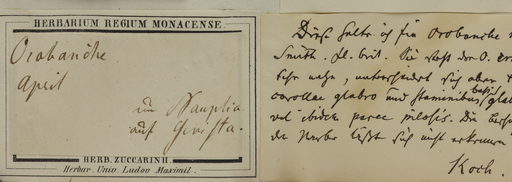 HERBARIUM REGIUM MONACENSE.
Orobanche
April
um Nauplia
auf Genista.
HERB. ZUCCARINII.
Herbar. Univ. Ludov. Maximil.
Diese halte ich für Orobanche
Smith. fl. brit. Sie steht der O.
sehr nahe, unterscheidet sich aber
corollae glabro und staminibus basi glab
vel ibidem parce pilosis. Die
der Narbe läßt sich nicht erkennen
Koch.